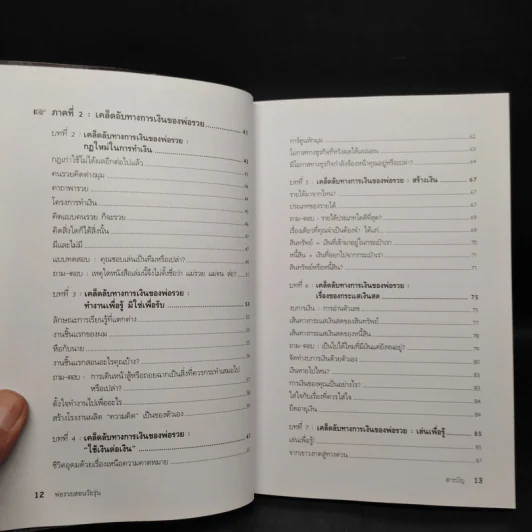 ภาคที่ 2 : เคล็ดลับทางการเงินของพ่อรวย 41
บทที่ 2 : เคล็ดลับทางการเงินของพ่อรวย :
กฎใหม่ในการทำเงิน 41
กฎเก่าใช้ไม่ได้ผลอีกต่อไปแล้ว 43
คนรวยคิดต่างมุม 44
คาถาพารวย
โครงการทำเงิน
คิดแบบคนรวย ก็จะรวย
คิดสิ่งใดก็ได้สิ่งนั้น
มีและไม่มี
แบบทดสอบ : คุณชอบเล่นเป็นทีมหรือเปล่า?
ถาม-ตอบ : เหตุใดหนังสือเล่มนี้จึงไม่ตั้งชื่อว่า แม่รวย แม่จน ล่ะ?
บทที่ 3 : เคล็ดลับทางการเงินของพ่อรวย :
ทำงานเพื่อรู้ มิใช่เพื่อรับ 53
ลักษณะการเรียนรู้ที่แตกต่าง
งานชิ้นแรกของผม
หือกับนาย
งานชิ้นแรกสอนอะไรคุณบ้าง?
ถาม-ตอบ : การเดินหน้าสู้หรือถอยฉากเป็นสิ่งที่ควรกระทำเสมอไป
หรือเปล่า?
ตั้งใจทำงานไปเพื่ออะไร
สร้างโรงงานผลิต "ความคิด" เป็นของตัวเอง
บทที่ 4 : เคล็ดลับทางการเงินของพ่อรวย :
"ใช้เงินต่อเงิน" 61
ชีวิตอุดมด้วยเรื่องเหนือความคาดหมาย
12 พ่อรวยสอนวัยรุ่น
การ์ตูนหักมุม 62
โอกาสทางธุรกิจที่หวังผลได้แน่นอน 64
มีโอกาสทางธุรกิจกำลังจ้องหน้าคุณอยู่หรือเปล่า? 65
บทที่ 5 : เคล็ดลับทางการเงินของพ่อรวย : สร้างเงิน 67
รายได้มาจากไหน? 67
ประเภทของรายได้ 68
ถาม-ตอบ : รายได้ประเภทใดดีที่สุด? 69
เรื่องเดียวที่คุณจำเป็นต้องจำ ได้แก่ 69
สินทรัพย์ = เงินที่เข้ามาอยู่ในกระเป๋าเรา 71
หนี้สิน = เงินที่ออกไปจากกระเป๋าเรา 71
สินทรัพย์หรือหนี้สิน? 71
บทที่ 6 : เคล็ดลับทางการเงินของพ่อรวย :
เรื่องของกระแสเงินสด 75
งบการเงิน : การอ่านตัวเลข
เส้นทางกระแสเงินสดของสินทรัพย์
เส้นทางกระแสเงินสดของหนี้สิน
ถาม-ตอบ : เป็นไปได้ไหมที่มีเงินแต่ยังจนอยู่?
จัดทำงบการเงินด้วยตัวเอง
เงินหายไปไหน?
การเงินของคุณเป็นอย่างไร? 84
ใส่ใจกับเรื่องที่ควรใส่ใจ 84
ยืดอายุเงิน 84
บทที่ 7 : เคล็ดลับทางการเงินของพ่อรวย : เล่นเพื่อรู้ 85
เล่นเพื่อรู้! 85
จากเขาวงกตสู่ทางด่วน 87
สารบัญ 13